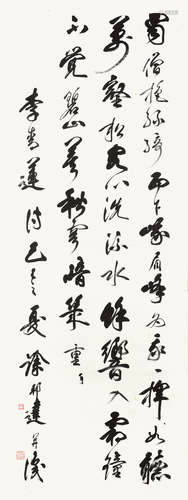 蜀僧抱綠綺西下峨眉峰為我一揮如聽
萬壑松客心洗流水餘響入霜鐘
不覺碧山暮秋雲暗幾重手
李青蓮詩 夏徐邦達并識